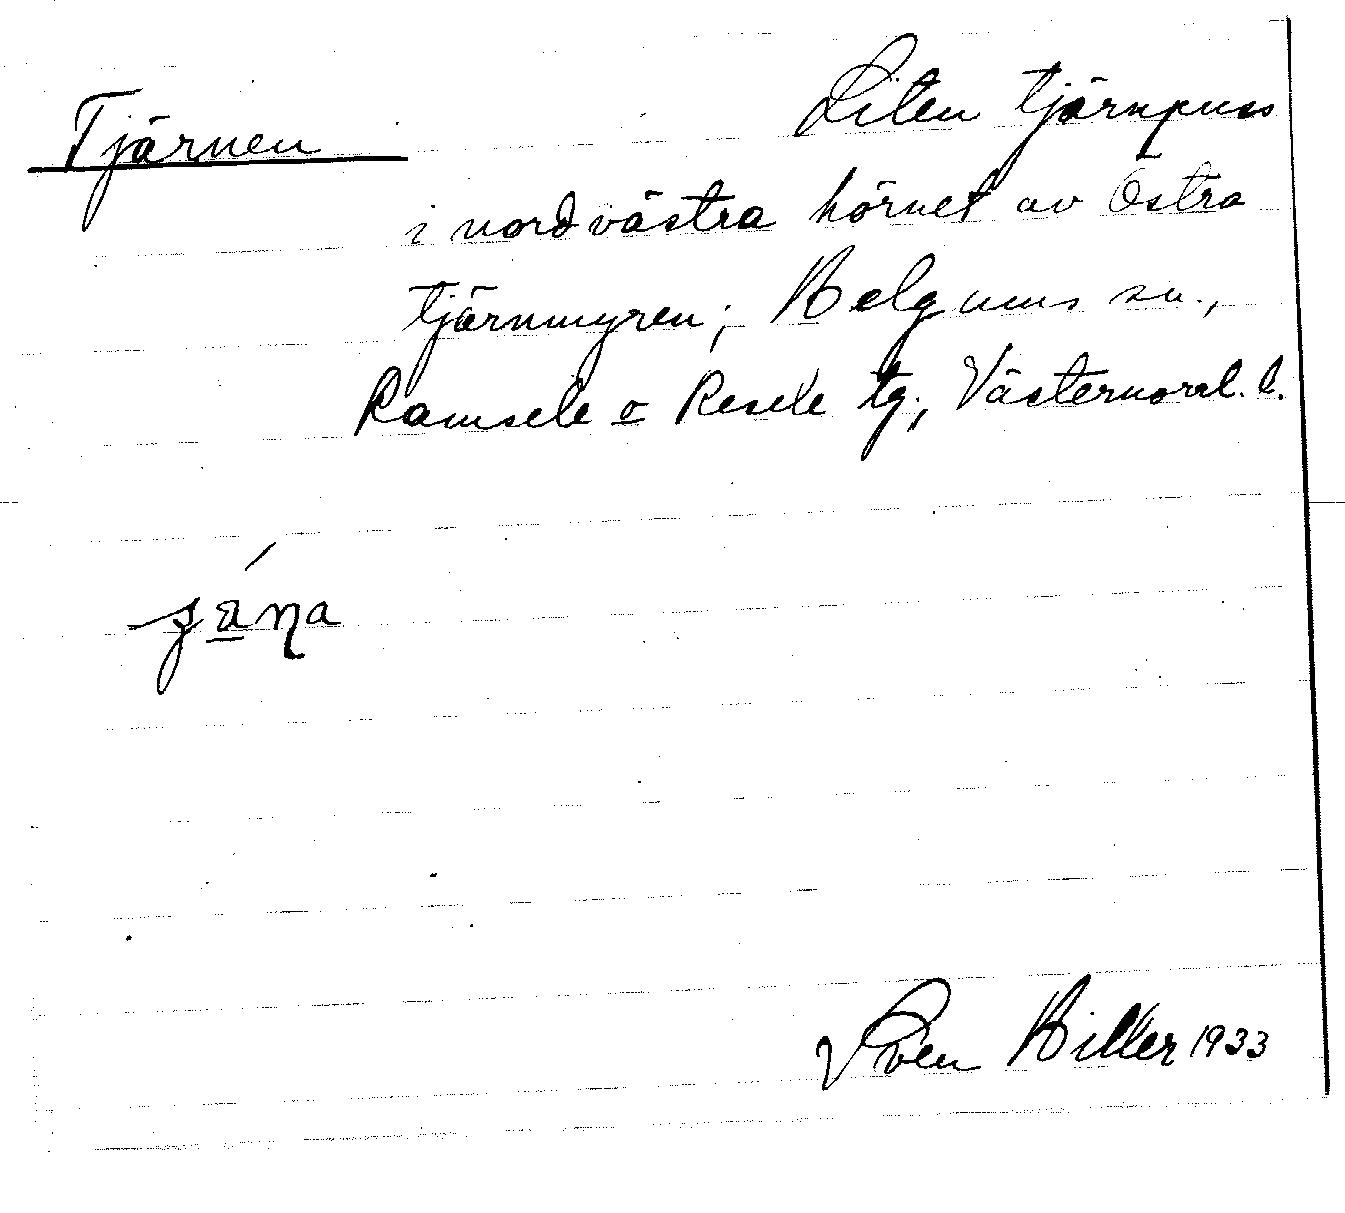 Tjärnen
Liten tjärnpuss
i nordvästra hörnet av Östra
tjärnmyren; Helgums sn.,
Ramsele o Resele tg., Västernorrl. l.
Sven Hiller 1933